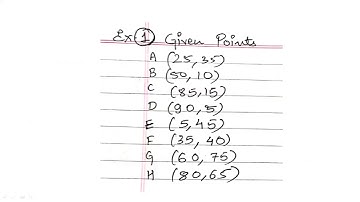 Ex ① Given Points
A (25, 35)
B (50, 10)
C (85,15)
D (90, 5)
E (5,45)
F (35, 40)
G (60, 75)
H (80,65)